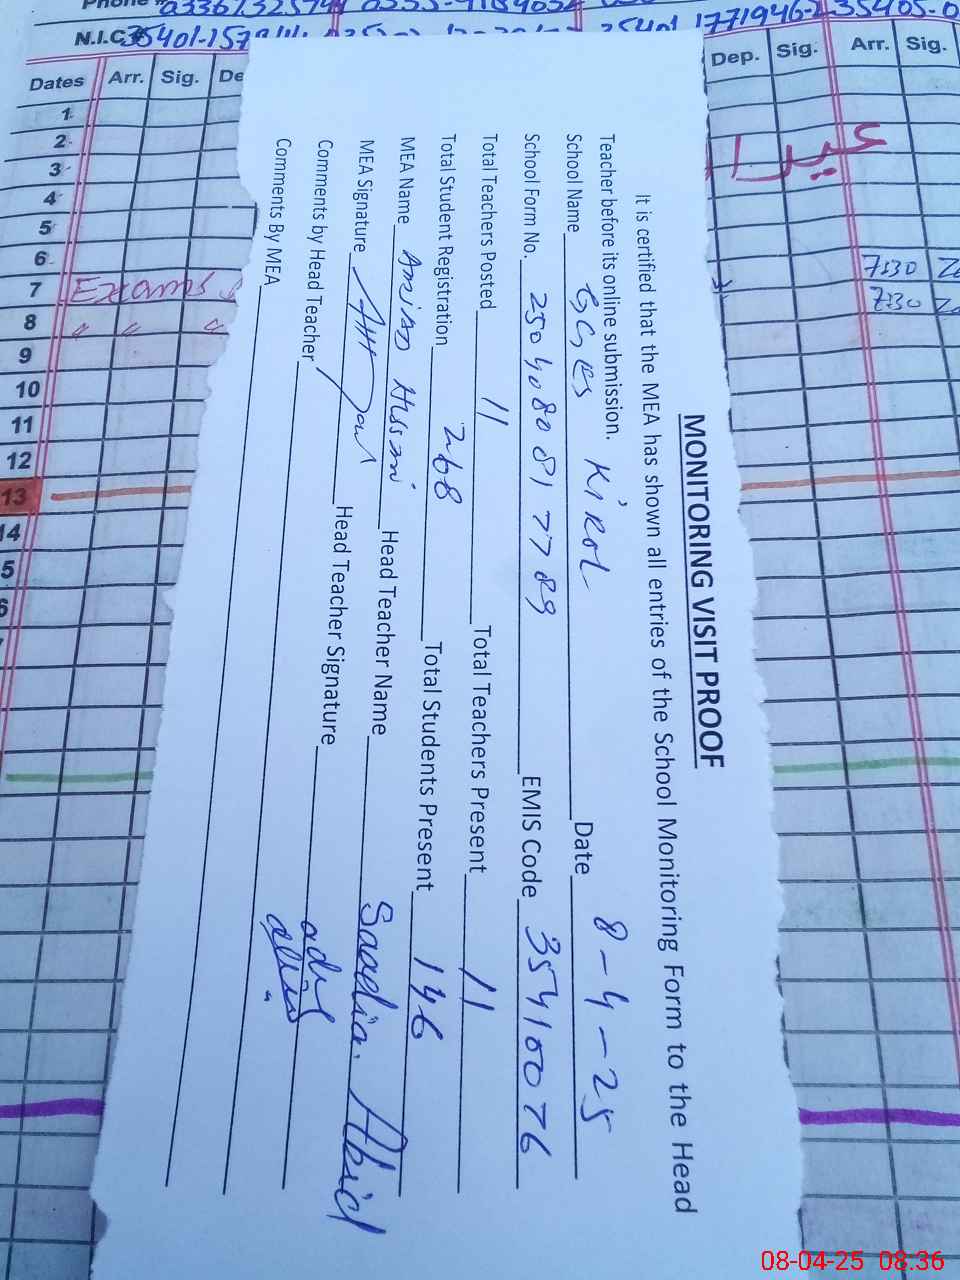 N.I.C#
Dates Arr. Sig. Dep. Sig. Arr. Sig.
1
2
3
4
5
6
7 Exams
8 " "
9
10
11
12
13
14
7:30
7:30
MONITORING VISIT PROOF
It is certified that the MEA has shown all entries of the School Monitoring Form to the Head
Teacher before its online submission.
School Name GGES Kirol Date 8-4-25
School Form No. 2504080817789 EMIS Code 35410076
Total Teachers Posted 11 Total Teachers Present 11
Total Student Registration 268 Total Students Present 146
MEA Name Head Teacher Name Saadia Abid
MEA Signature Head Teacher Signature
Comments by Head Teacher
Comments By MEA
08-04-25 08:36